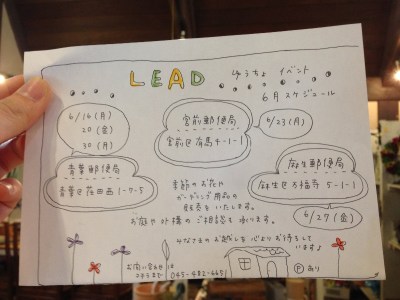 LEAD
ゆうちょ イベント
6月スケジュール
6/16(月)
20(金)
30(月)
青葉郵便局
青葉区荏田西1-7-5
宮前郵便局
宮前区有馬4-1-1
6/23(月)
麻生郵便局
麻生区万福寺5-1-1
6/27(金)
季節のお花や
ガーデニング用品の
販売をいたします。
お庭や外構のご相談も承ります。
みなさまのお越しを心よりお待ちして
います♪
お問い合わせは
Pあり